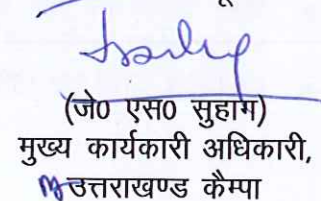 (जे0 एस0 सुहाग)
मुख्य कार्यकारी अधिकारी,
उत्तराखण्ड कैम्पा